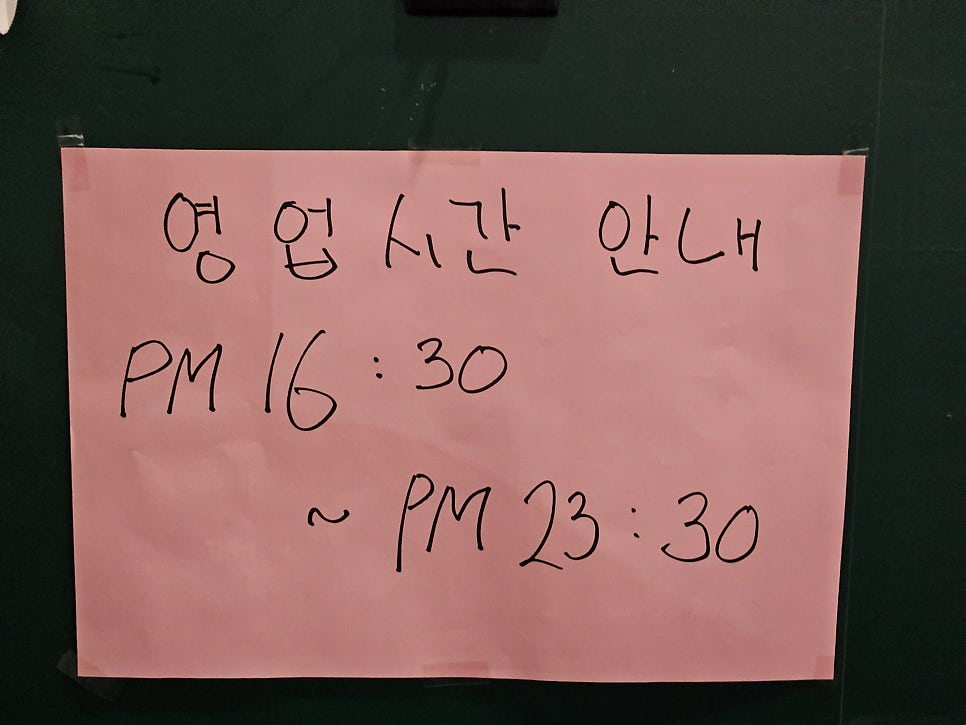 영업시간 안내
PM 16:30
~ PM 23:30